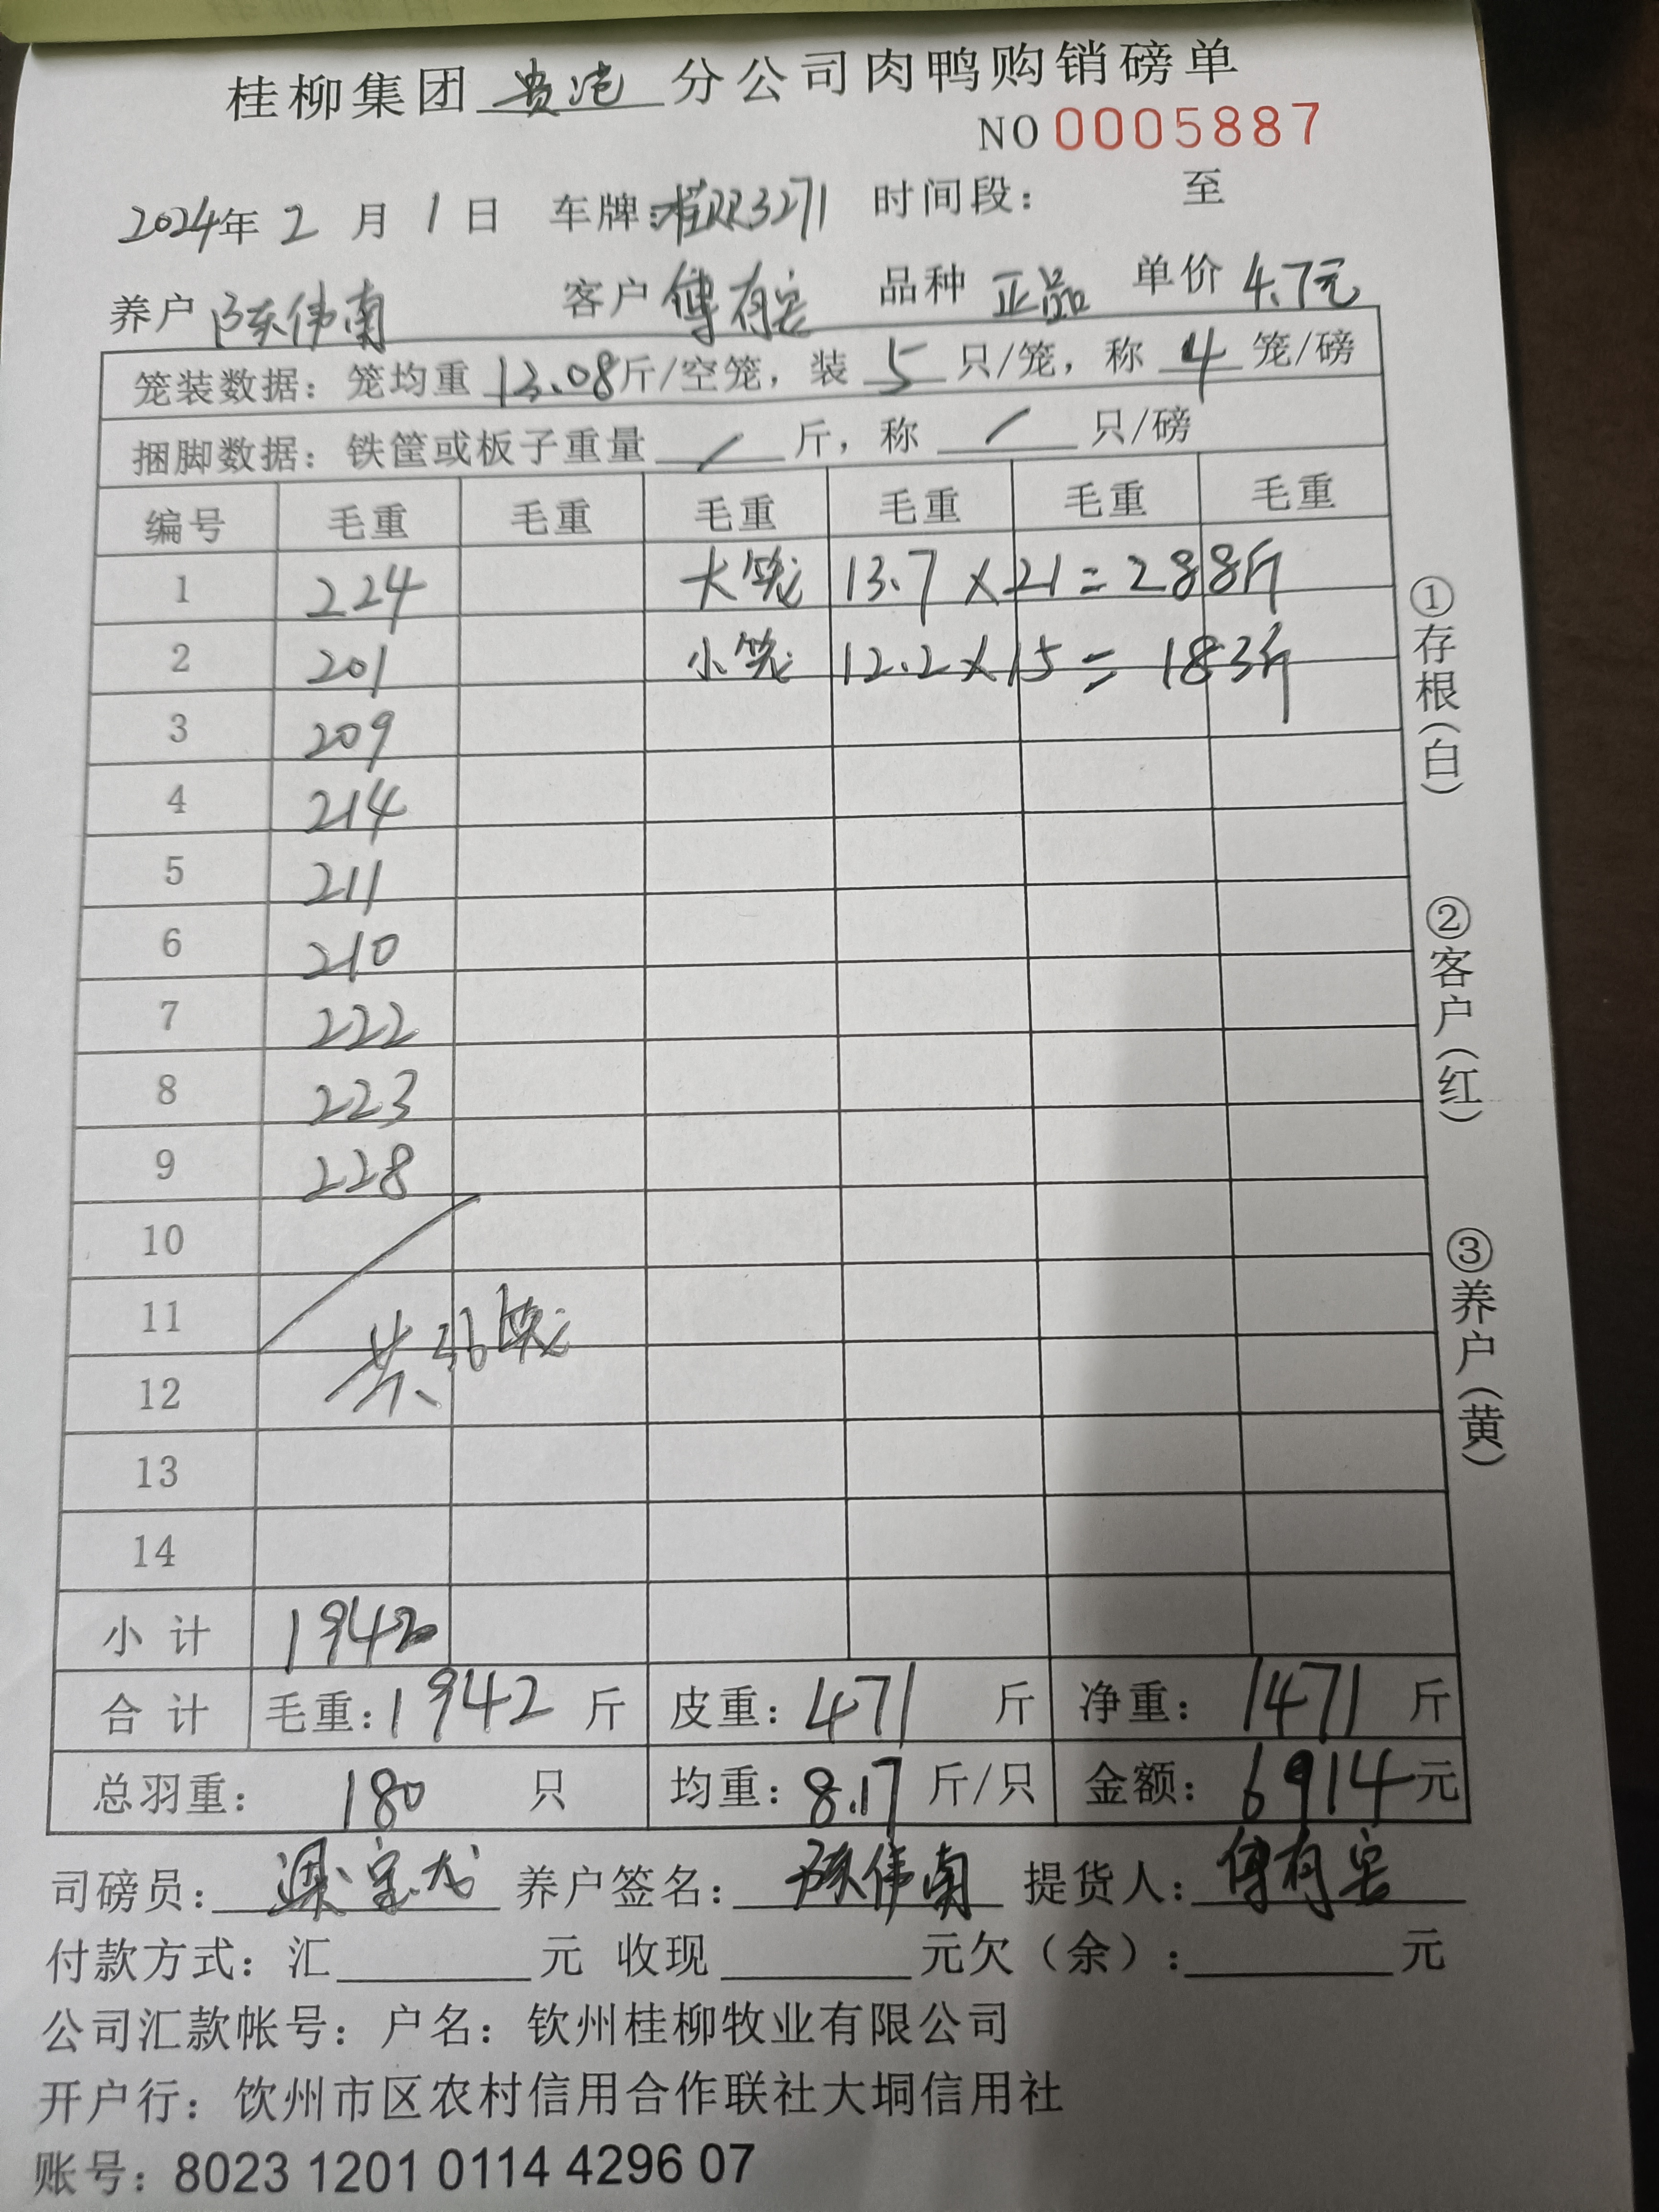 桂柳集团 贵港 分公司肉鸭购销磅单
NO 0005887
2024年 2 月 1 日 车牌:桂RR3271 时间段: 至
养户 陈伟南 客户 傅有宾 品种 正品 单价 4.7元
笼装数据: 笼均重 13.08斤/空笼, 装 5 只/笼, 称 4 笼/磅
捆脚数据: 铁筐或板子重量 / 斤, 称 / 只/磅
编号 毛重 毛重 毛重 毛重 毛重 毛重
1 224 大笼 13.7×21=288斤
2 201 小笼 12.2×15=183斤
3 209
4 214
5 211
6 210
7 222
8 223
9 228
10
11 共36笼
12
13
14
小计 1942
合计 毛重:1942 斤 皮重:471 斤 净重:1471 斤
总羽重: 180 只 均重:8.17 斤/只 金额:6914元
司磅员: 养户签名: 陈伟南 提货人: 傅有宾
付款方式: 汇 元 收现 元欠(余): 元
公司汇款帐号: 户名: 钦州桂柳牧业有限公司
开户行: 钦州市区农村信用合作联社大垌信用社
账号: 8023 1201 0114 4296 07
①存根(白)
②客户(红)
③养户(黄)